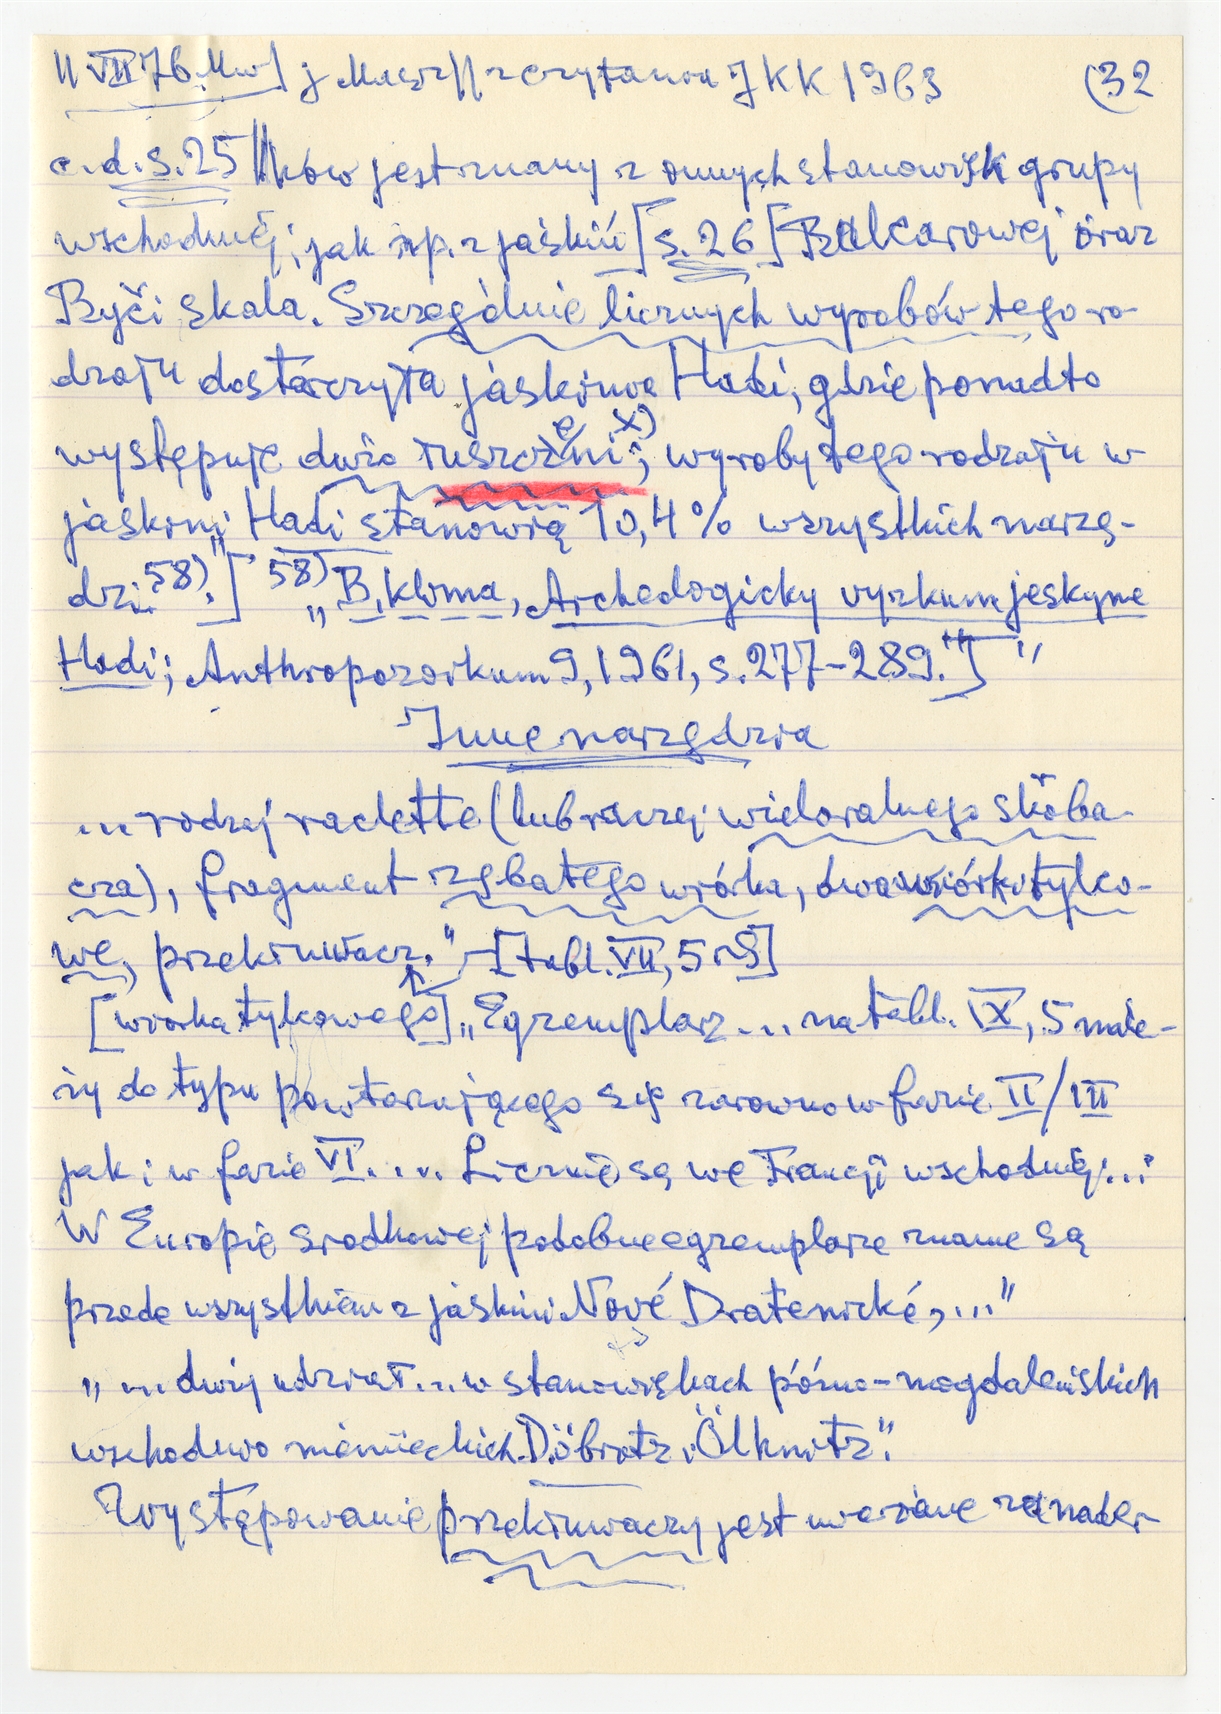 11 VII 76 Mw] j Masz // z czytania J K K 1963 (32
c.d.s.25 // ków jest znany z innych stanowisk grupy
wschodniej, jak np. z jaskiń [s. 26] Balcarowej oraz
Byči skala. Szczególnie licznych wyrobów tego ro-
dzaju dostarczyła jaskinia Hadi, gdzie ponadto
występuje dużo tuszczeni x); wyroby tego rodzaju w
jaskini Hadi stanowią 10,4% wszystkich narzę-
dzi 58)." ] 58) „B. Klima, Archeologicky vyzkum jeskyne
Hadi; Anthropozoikum 9, 1961, s. 277-289."] "
Inne narzędzia
... rodzaj raclette (lub raczej wieloralnego skroba-
cza), fragment zębatego wiórka, dwa wiórki tylco-
we, przekłuwacz." [tabl. VII, 5 i 9]
[wiorka tylcowego] „Egzemplarz ... na tabl. IX, 5 nale-
ży do typu powtarzającego się zarowno w fazie II/III
jak i w fazie VI.... Licznie są we Francji wschodniej...;
W Europie srodkowej podobne egzemplarze znane są
przede wszystkiem z jaskini Nové Dratenické, ..."
„ ... duży udział ... w stanowiskach późno-magdaleńskich
wschodnio niemieckich Döbritz i Ölknitz".
Występowanie przekłuwaczy jest uważane za nader